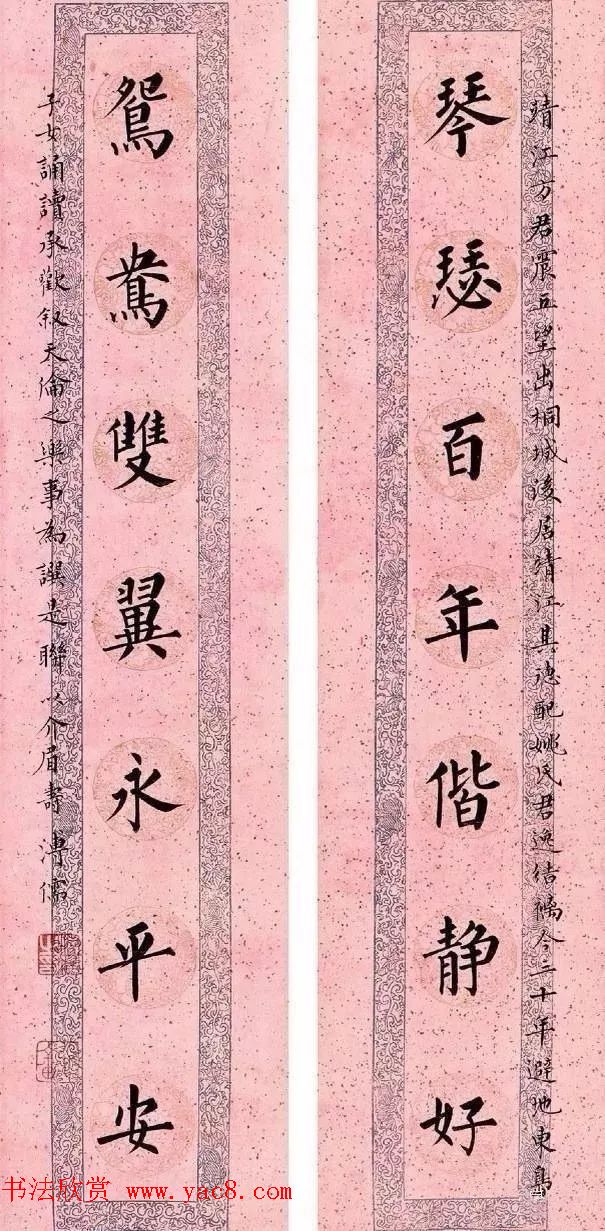 靖江方君震五望出桐城後居靖江其德配姚氏君逸结褵今三十年避地東島
琴瑟百年偕静好
鴛鴦雙翼永平安
子女誦讀承歡叙天倫之樂事為譔是聯以介眉壽 溥儒
书法欣赏 www.yac8.com